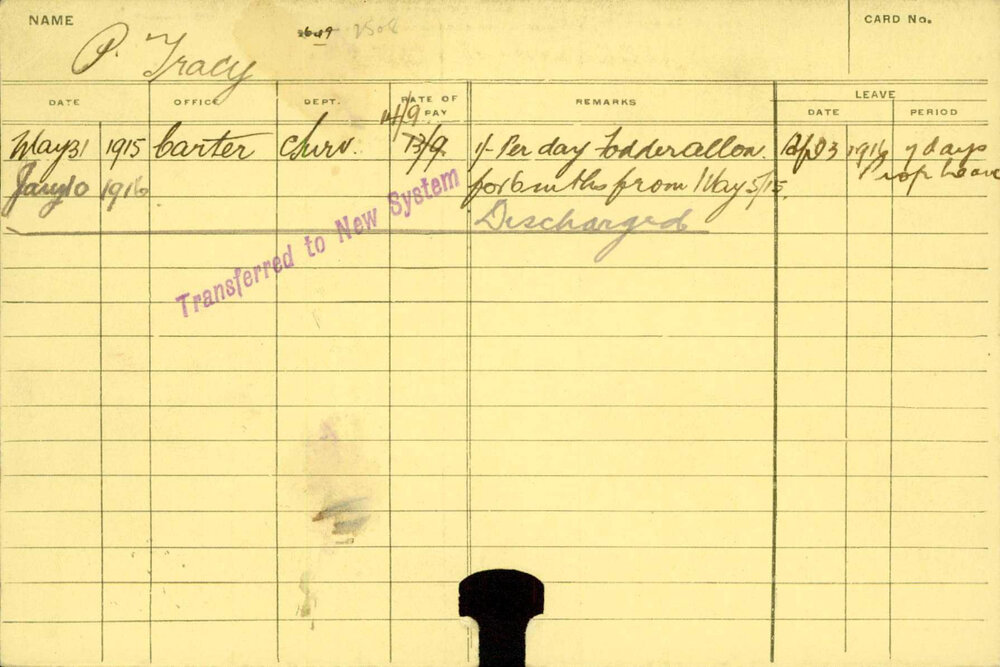 NAME
CARD No.
P. Tracy
DATE OFFICE DEPT. RATE OF PAY REMARKS LEAVE
DATE PERIOD
14/9
May 31 1915 Carter 13/9 1/- Per day Fodder allow. 1916 7 days
Jany 10 1916 for 6 mths from May 5/15. Prop Leave
Discharged
Transferred to New System